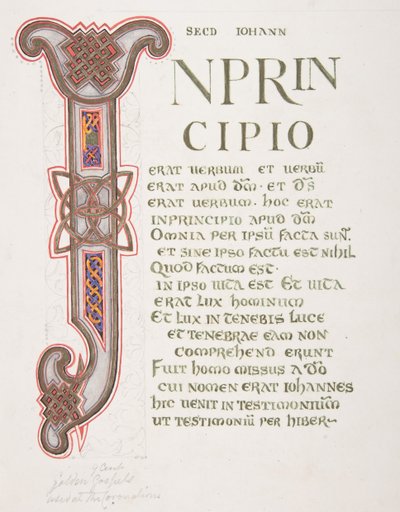 SECD IOHANN
INPRIN
CIPIO
ERAT UERBUM ET UERBŪ
ERAT APUD DM̄ · ET D̄S
ERAT UERBUM · HOC ERAT
INPRINCIPIO APUD DM̄
OMNIA PER IPSŪ FACTA SUN̄.
ET SINE IPSO FACTŪ EST NIHIL
QUOD FACTUM EST ·
IN IPSO UITA EST ET UITA
ERAT LUX HOMINUM
ET LUX IN TENEBIS LUCE
ET TENEBRAE EAM NON
COMPREHEND ERUNT
FUIT HOMO MISSUS A DŌ
CUI NOMEN ERAT IOHANNES
HIC UENIT IN TESTIMONIUM
UT TESTIMONIŪ PER HIBER
9 Cent
Golden Gospels
used at the Coronations